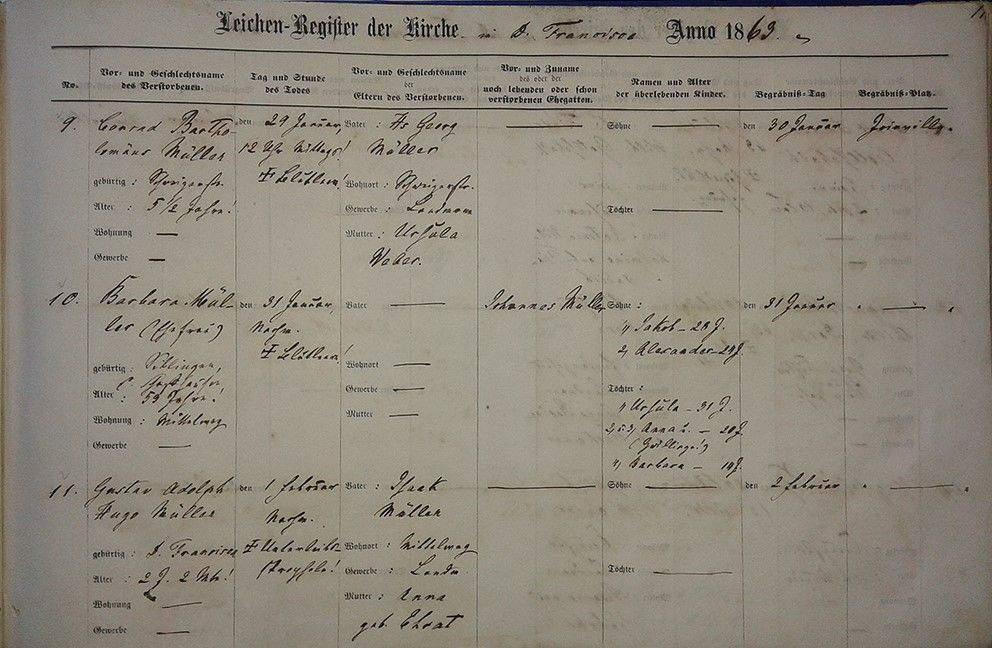 Leichen-Register der Kirche in D. Francisca Anno 1863.
No.
Vor- und Geschlechtsname
des Verstorbenen.
Tag und Stunde
des Todes
Vor- und Geschlechtsname
der
Eltern des Verstorbenen.
Vor- und Zuname
des oder der
noch lebenden oder schon
verstorbenen Ehegatten.
Namen und Alter
der überlebenden Kinder.
Begräbniß-Tag
Begräbniß-Platz.
9.
Conrad Bartho-
lomäus Müller
gebürtig :
Alter : 5 1/2 Jahre!
Wohnung —
Gewerbe —
den 29 Januar,
12 Uhr Mittags!
Vater : Georg
Müller
Wohnort :
Gewerbe : Landmann
Mutter : Ursula
Weber.
—
Söhne —
Töchter —
den 30 Januar
Joinville.
10.
Barbara Mül-
ler (Ehefrau)
gebürtig : Siblingen,
Alter : 59 Jahre!
Wohnung : Mittelweg
Gewerbe —
den 31 Januar,
Nachm.
Vater —
Wohnort —
Gewerbe —
Mutter —
Johannes Müller
Söhne :
1, Jakob – 28 J.
2, Alexander
Töchter :
1, Ursula – 31 J.
2, u. 3, Anna
4, Barbara –
den 31 Januar
" — "
11.
Gustav Adolph
Hugo Müller
gebürtig : D. Francisca
Alter : 2 J. 2 Mte!
Wohnung —
Gewerbe —
den 1 Februar
Nachm.
Vater : Isaak
Müller
Wohnort : Mittelweg
Gewerbe : Landm.
Mutter : Anna
geb. Ehrat
—
Söhne —
Töchter —
den 2 Februar
" — "